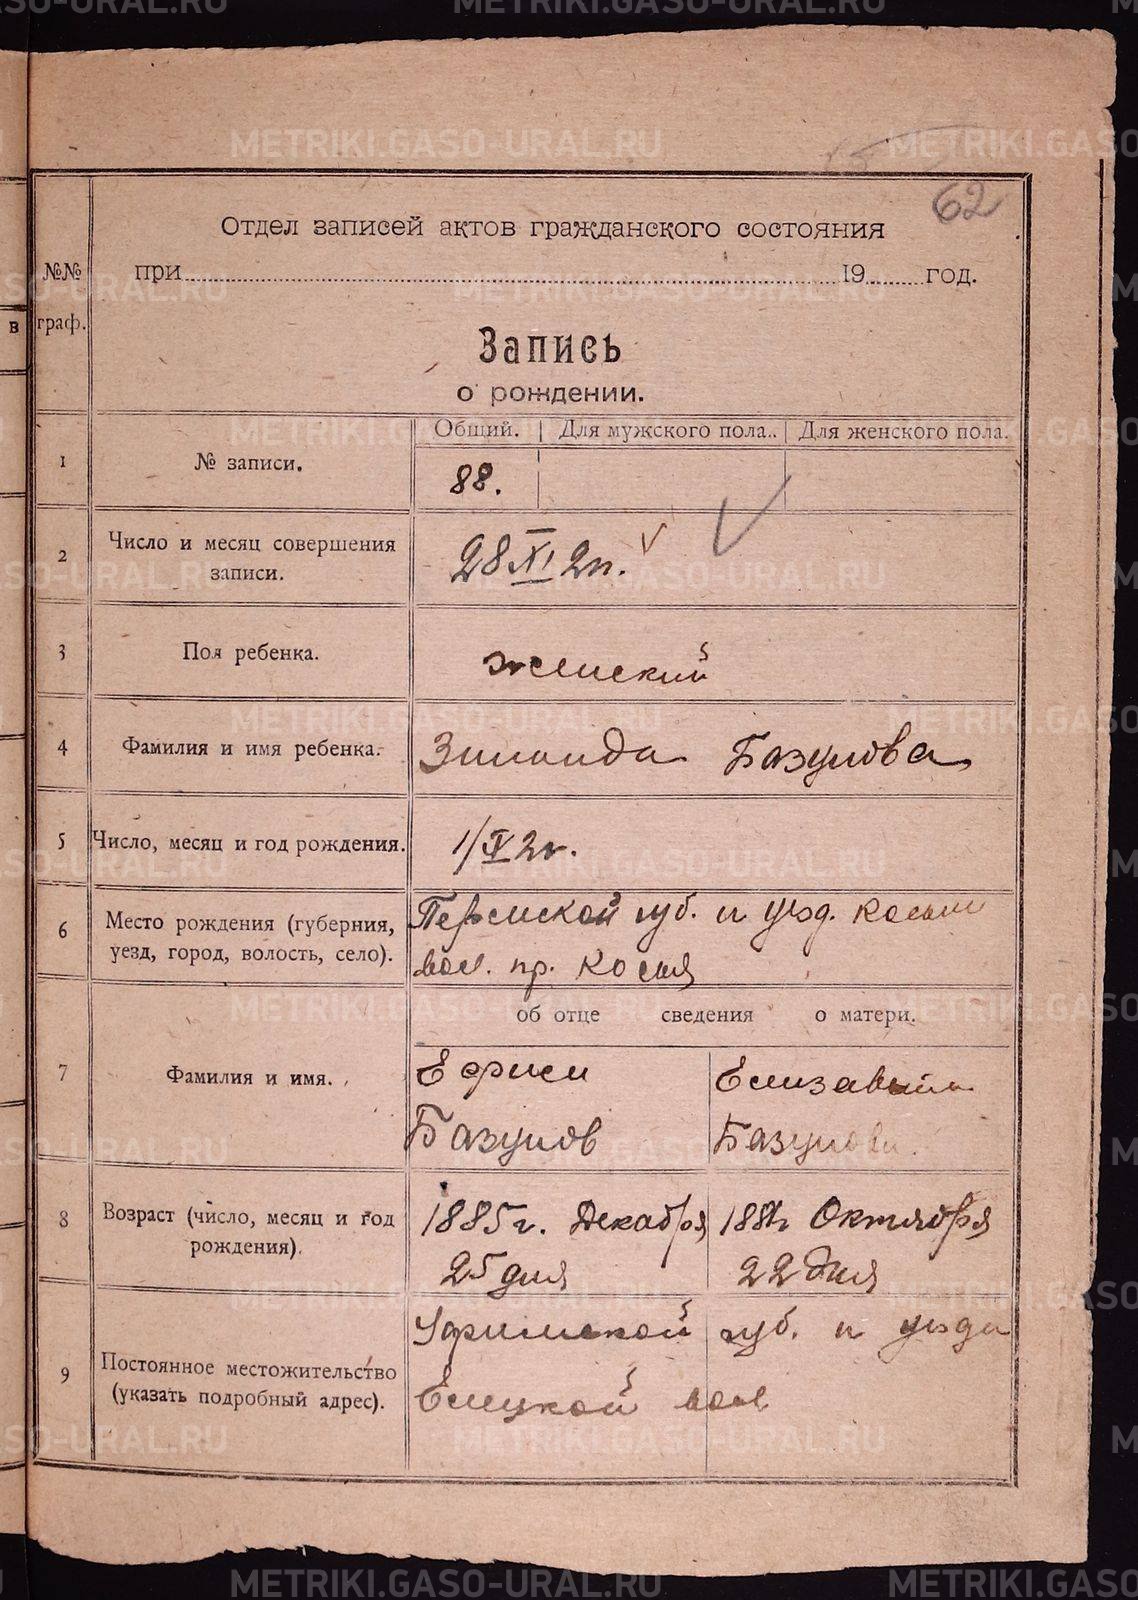 62
Отдел записей актов гражданского состояния
№№ граф.
при 19 год.
Запись
о рождении.
Общий. Для мужского пола. Для женского пола.
1 № записи. 88.
2 Число и месяц совершения записи. 28 XI 2 г.
3 Пол ребенка. женский
4 Фамилия и имя ребенка. Зинаида Базунова
5 Число, месяц и год рождения. 1/ 2 г.
6 Место рождения (губерния, уезд, город, волость, село). Пермской губ. и уезд.
вол. пр. Косья
об отце сведения о матери.
7 Фамилия и имя. Ефим Елизавета
Базунов Базунова
8 Возраст (число, месяц и год рождения). 1885 г. Декабря Октября
25 дня 22 дня
9 Постоянное местожительство (указать подробный адрес). Уфимской губ. и уезда
вол
METRIKI.GASO-URAL.RU